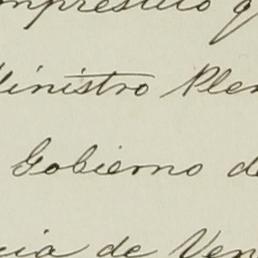 mprestito q
Ministro Plen
Gobierno de
cia de Ven